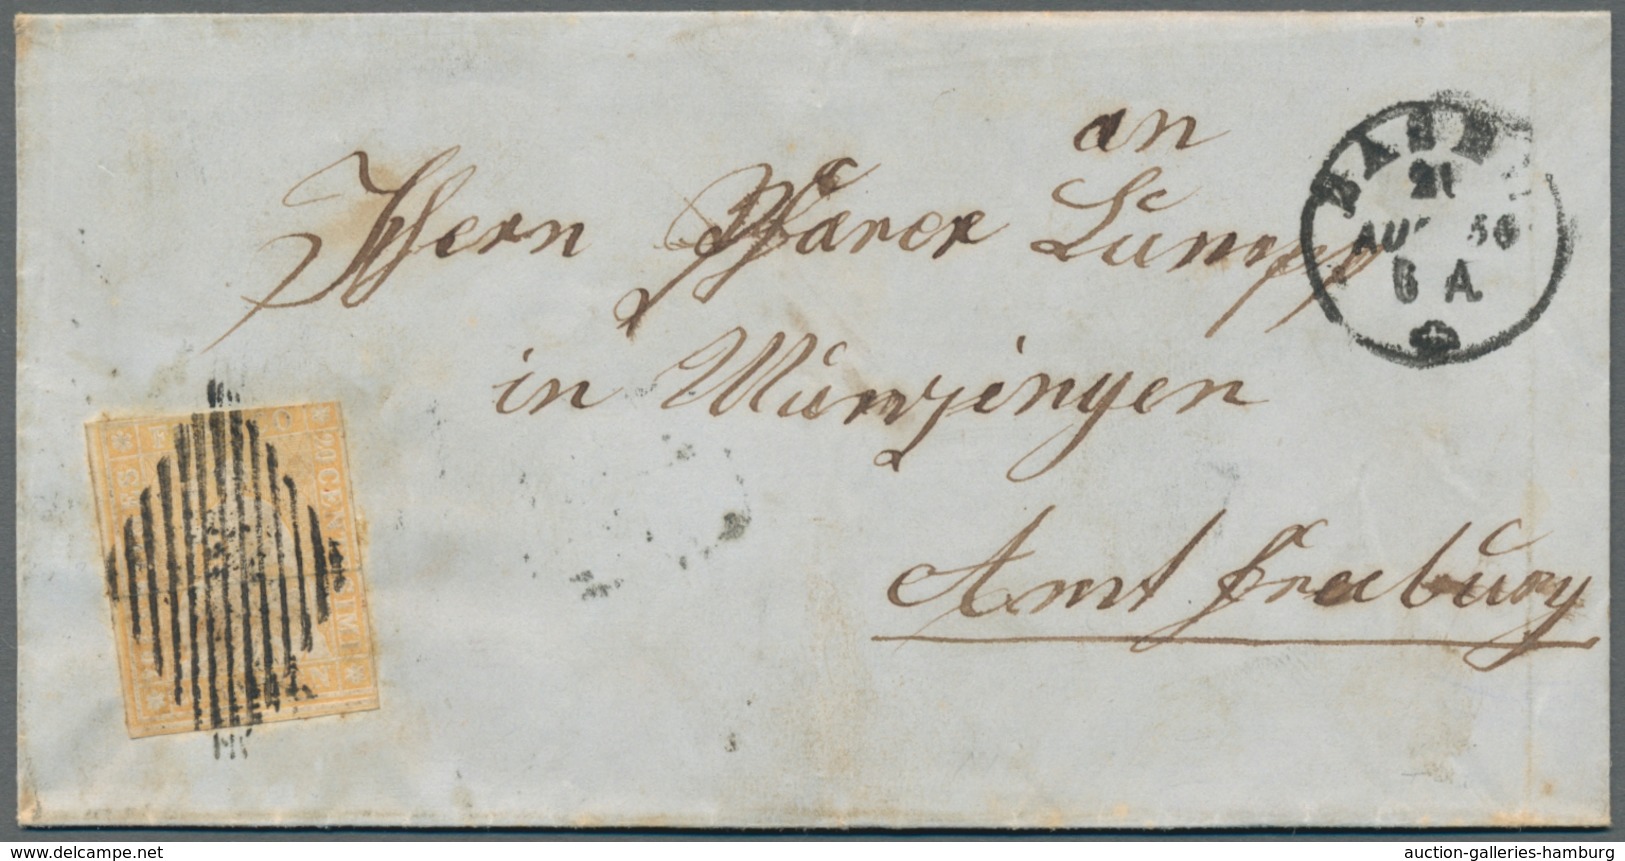 an
Herrn Pfarrer Lump
in Münzingen
Amt Freiburg
BASEL
21
AUG 56
6 A
20 CENTIMES
www.delcampe.net
auction-galleries-hamburg